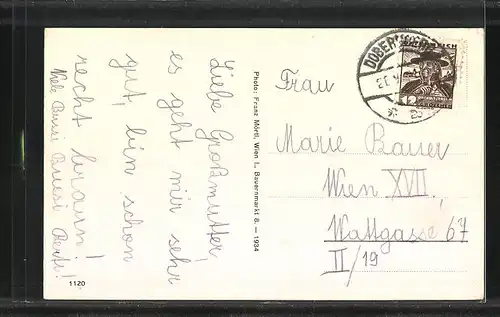 Liebe Großmutter,
es geht mir sehr
gut, bin schon
recht braun!
Viele Bussi Bussi
Photo: Franz Mörtl, Wien I., Bauernmarkt 8. — 1934
1120
Frau
Marie Bauer
Wien XVII,
Wattgasse 67
II/19
12